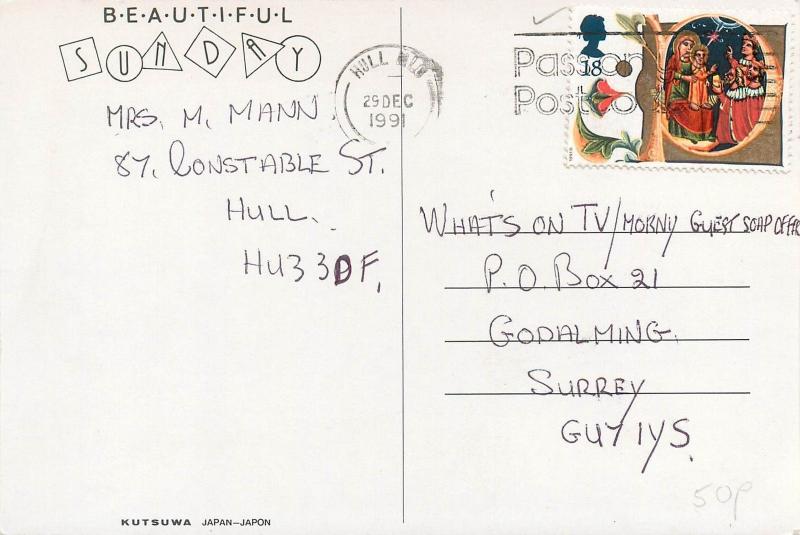 B·E·A·U·T·I·F·U·L
SUNDAY
MRS. M. MANN.
87, CONSTABLE ST.
HULL.
HU3 3DF,
KUTSUWA JAPAN–JAPON
HULL
29 DEC
1991
18
Pass on
Postco
WHAT'S ON TV/MORNY GUEST SOAP OFFER
P.O. BOX 21
GODALMING.
SURREY
GU7 1YS.
50p